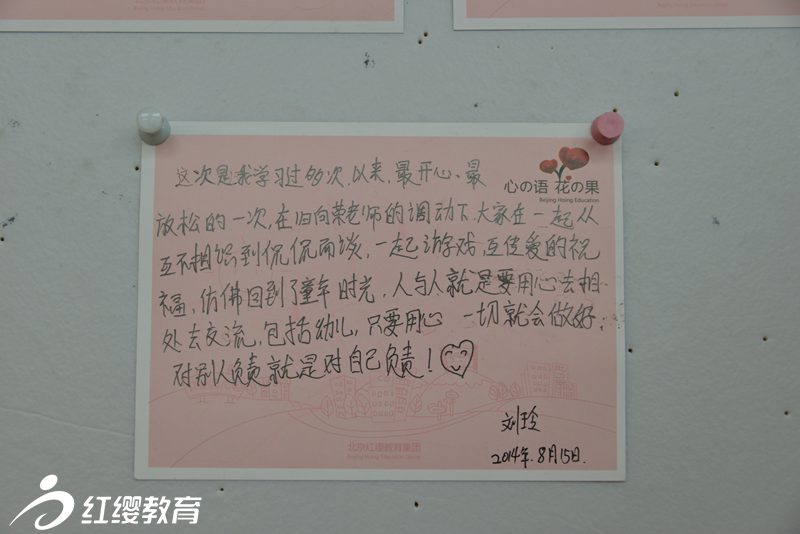 心の语 花の果
Beijing Hoing Education
这次是我学习过多次,以来,最开心、最
放松的一次,在归向荣老师的调动下,大家在一起从
互不相识到侃侃而谈,一起游戏,互传爱的祝
福,仿佛回到了童年时光,人与人就是要用心去相
处去交流,包括幼儿,只要用心 一切就会做好;
对别人负责就是对自己负责!
刘玲
2014年.8月15日.
北京红缨教育集团
Beijing Hoing Education Group
红缨教育